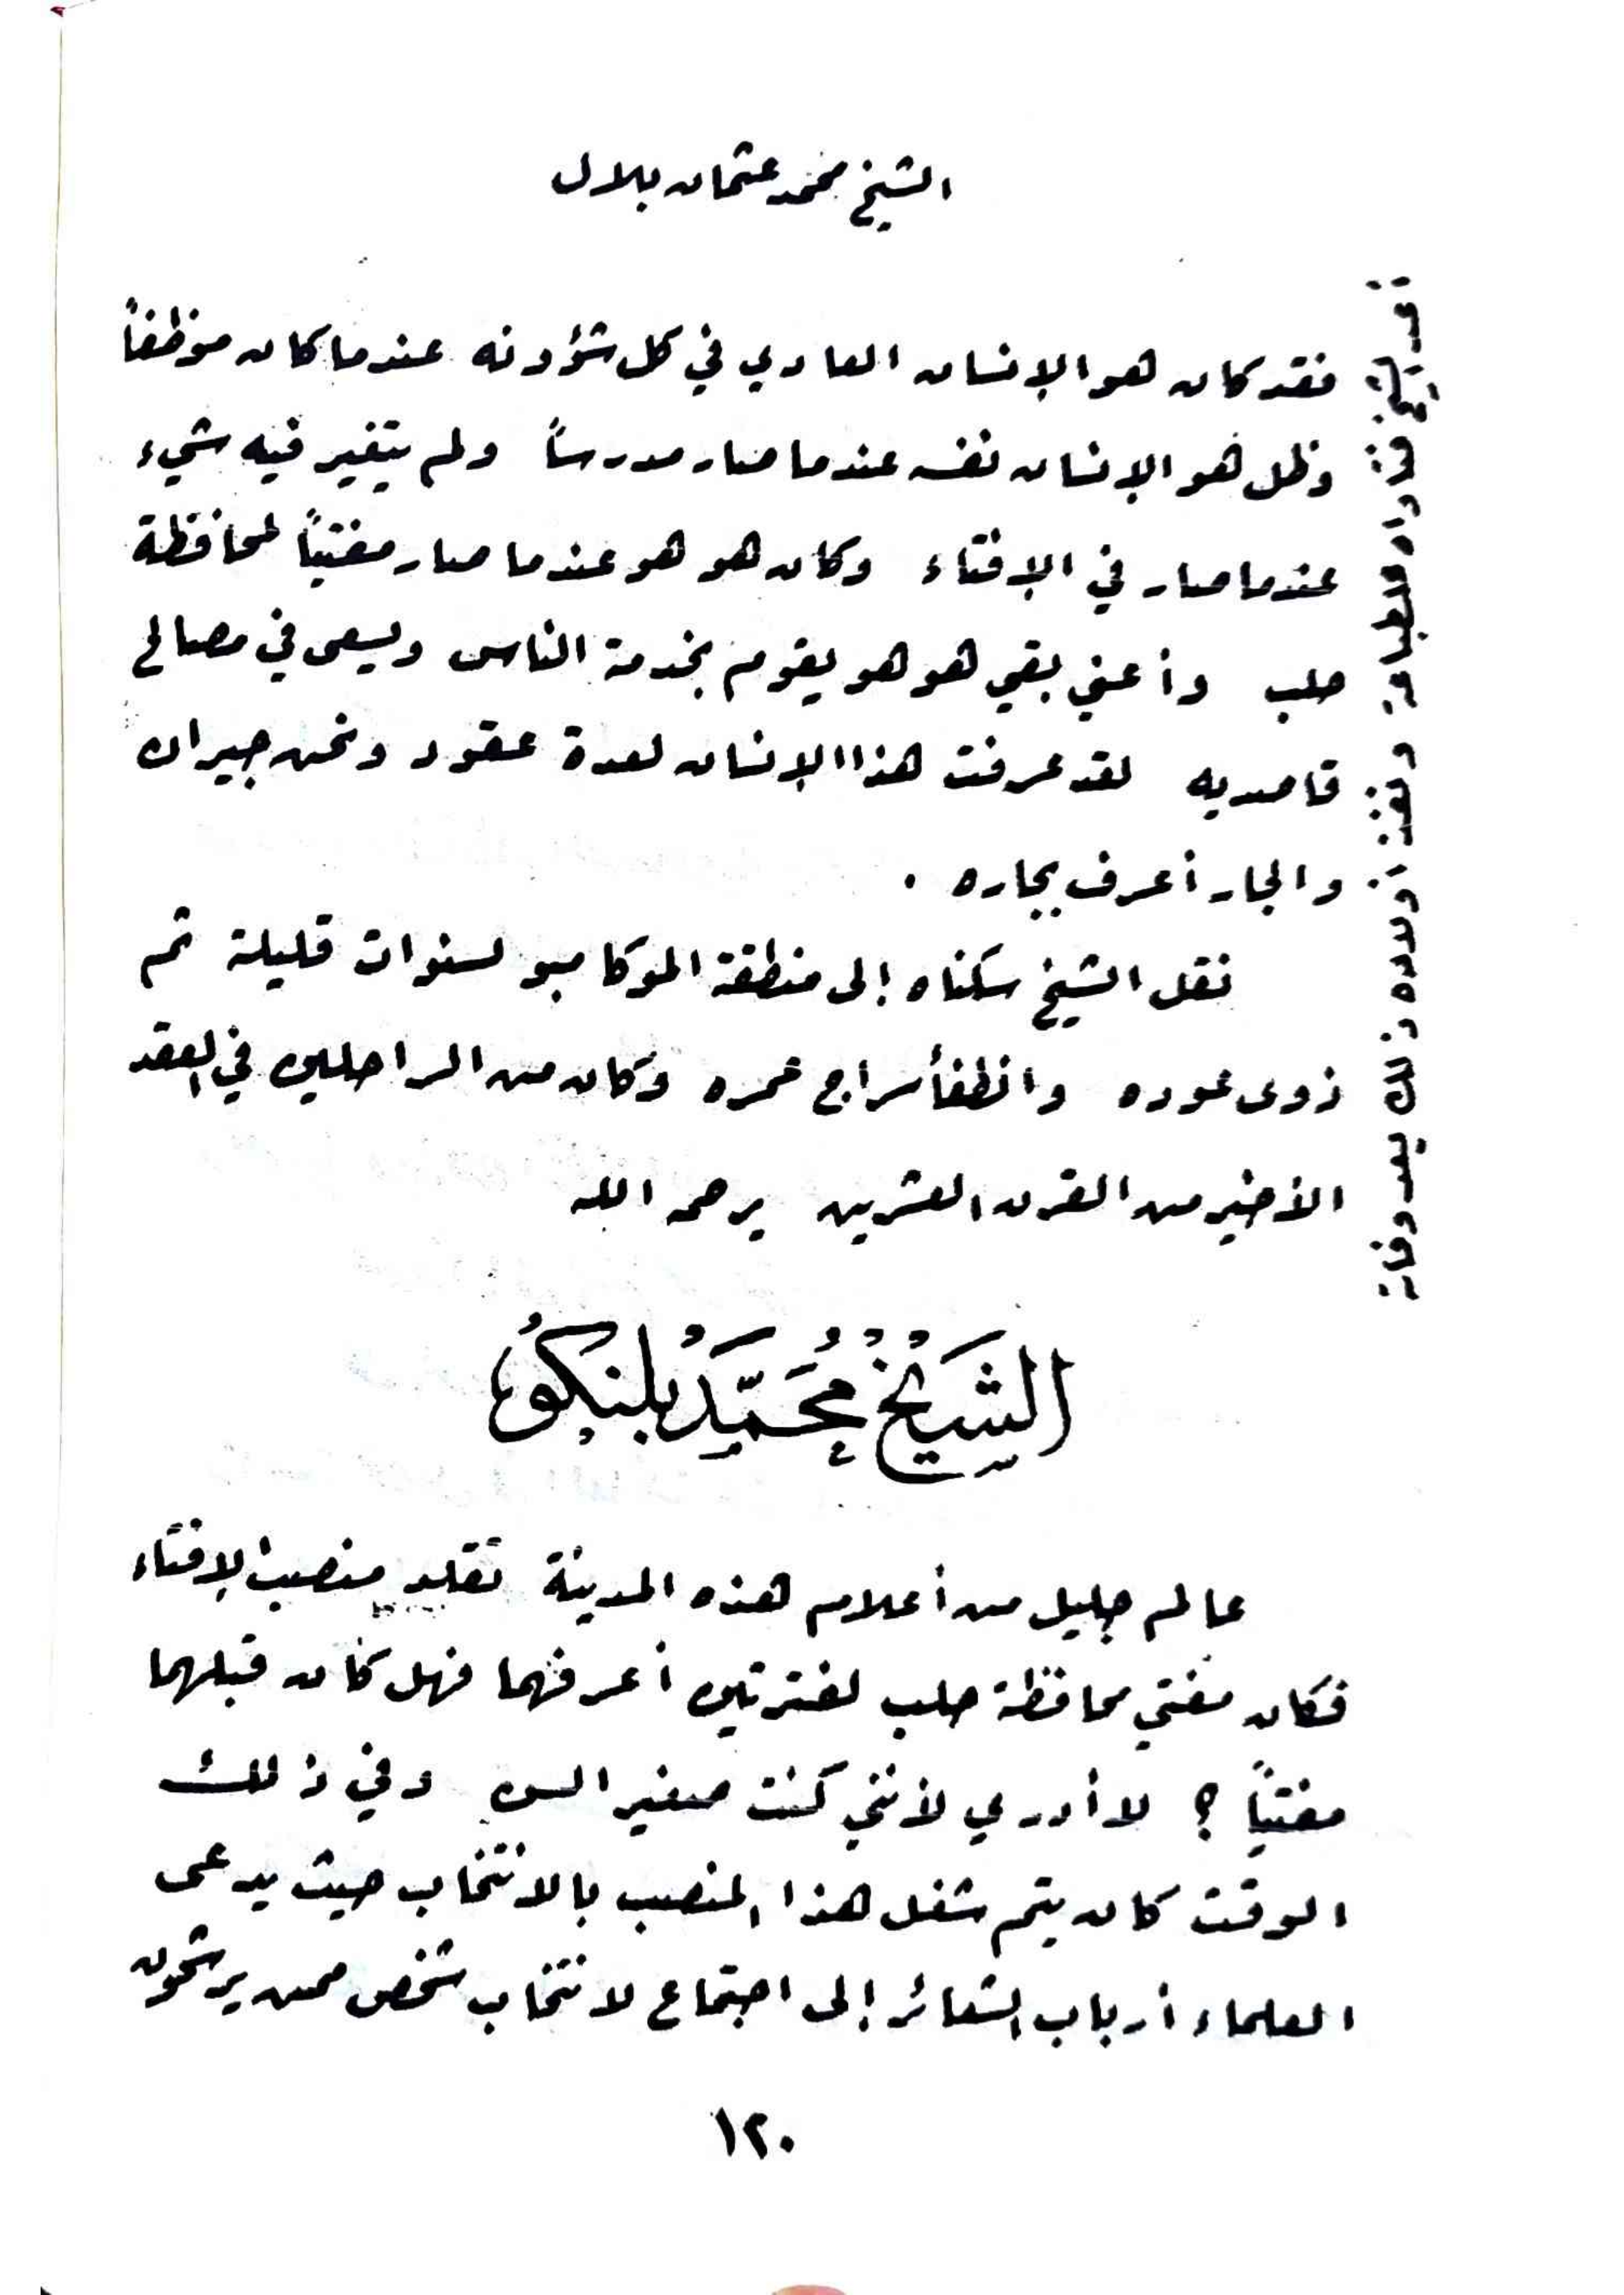 الشيخ محمد عثمان بلال
فقد كان هو الإنسان العادي في كل شؤونه عندما كان موظفاً
وظل هو الإنسان نفسه عندما صار مدرساً ولم يتغير فيه شيء
عندما صار في الإفتاء وكان هو هو عندما صار مفتياً لمحافظة
حلب وأعني بقي هو هو يقوم بخدمة الناس ويسعى في مصالح
قاصديه لقد عرفت هذا الإنسان لعدة عقود ونحن جيران
والجار أعرف بجاره .
نقل الشيخ سكناه إلى منطقة الموكامبو لسنوات قليلة ثم
ذوى عوده وانطفأ سراج عمره وكان من الراحلين في العقد
الأخير من القرن العشرين يرحمه الله
ونفذ أولاده ذلك بعد وفاته
الشَيْخُ مُحَمَّدُ بلنكو
عالم جليل من أعلام هذه المدينة تقلد منصب الإفتاء
فكان مفتي محافظة حلب لفترتين أعرفهما فهل كان قبلهما
مفتياً ؟ لا أدري لأنني كنت صغير السن وفي ذلك
الوقت كان يتم شغل هذا المنصب بالانتخاب حيث يدعى
العلماء أرباب الشعائر إلى اجتماع لانتخاب شخص ممن يرشحون
١٢٠